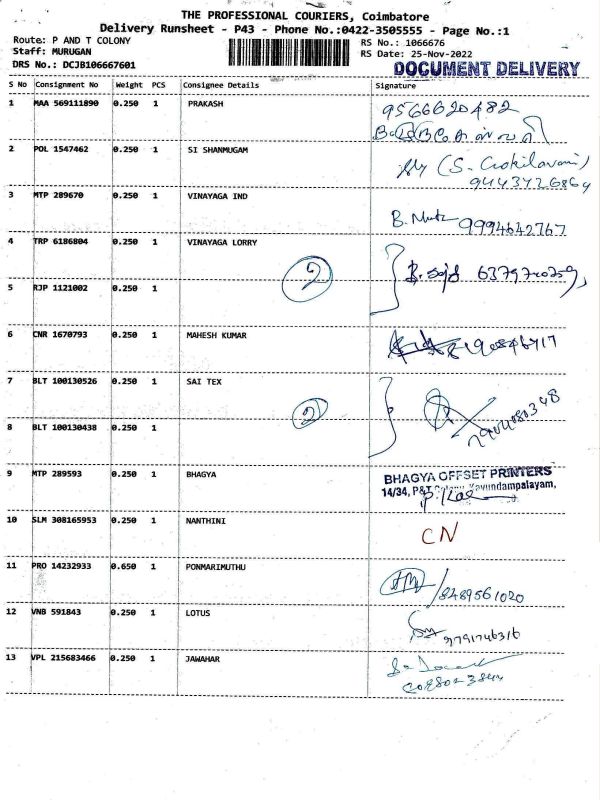 THE PROFESSIONAL COURIERS, Coimbatore
Delivery Runsheet - P43 - Phone No.:0422-3505555 - Page No.:1
Route: P AND T COLONY
RS No.: 1066676
Staff: MURUGAN
RS Date: 25-Nov-2022
DRS No.: DCJB106667601
DOCUMENT DELIVERY
S No Consignment No Weight PCS Consignee Details Signature
1 MAA 569111890 0.250 1 PRAKASH 9566620482
2 POL 1547462 0.250 1 SI SHANMUGAM (S. Cokilavani)
3 MTP 289670 0.250 1 VINAYAGA IND B. 9994642767
4 TRP 6186804 0.250 1 VINAYAGA LORRY
2 B.
5 RJP 1121002 0.250 1
6 CNR 1670793 0.250 1 MAHESH KUMAR
7 BLT 100130526 0.250 1 SAI TEX
2
8 BLT 100130438 0.250 1
9 MTP 289593 0.250 1 BHAGYA BHAGYA OFFSET PRINTERS
14/34, P&T Kavundampalayam,
10 SLM 308165953 0.250 1 NANTHINI CN
11 PRO 14232933 0.650 1 PONMARIMUTHU /8489561020
12 VNB 591843 0.250 1 LOTUS 9791746316
13 VPL 215683466 0.250 1 JAWAHAR